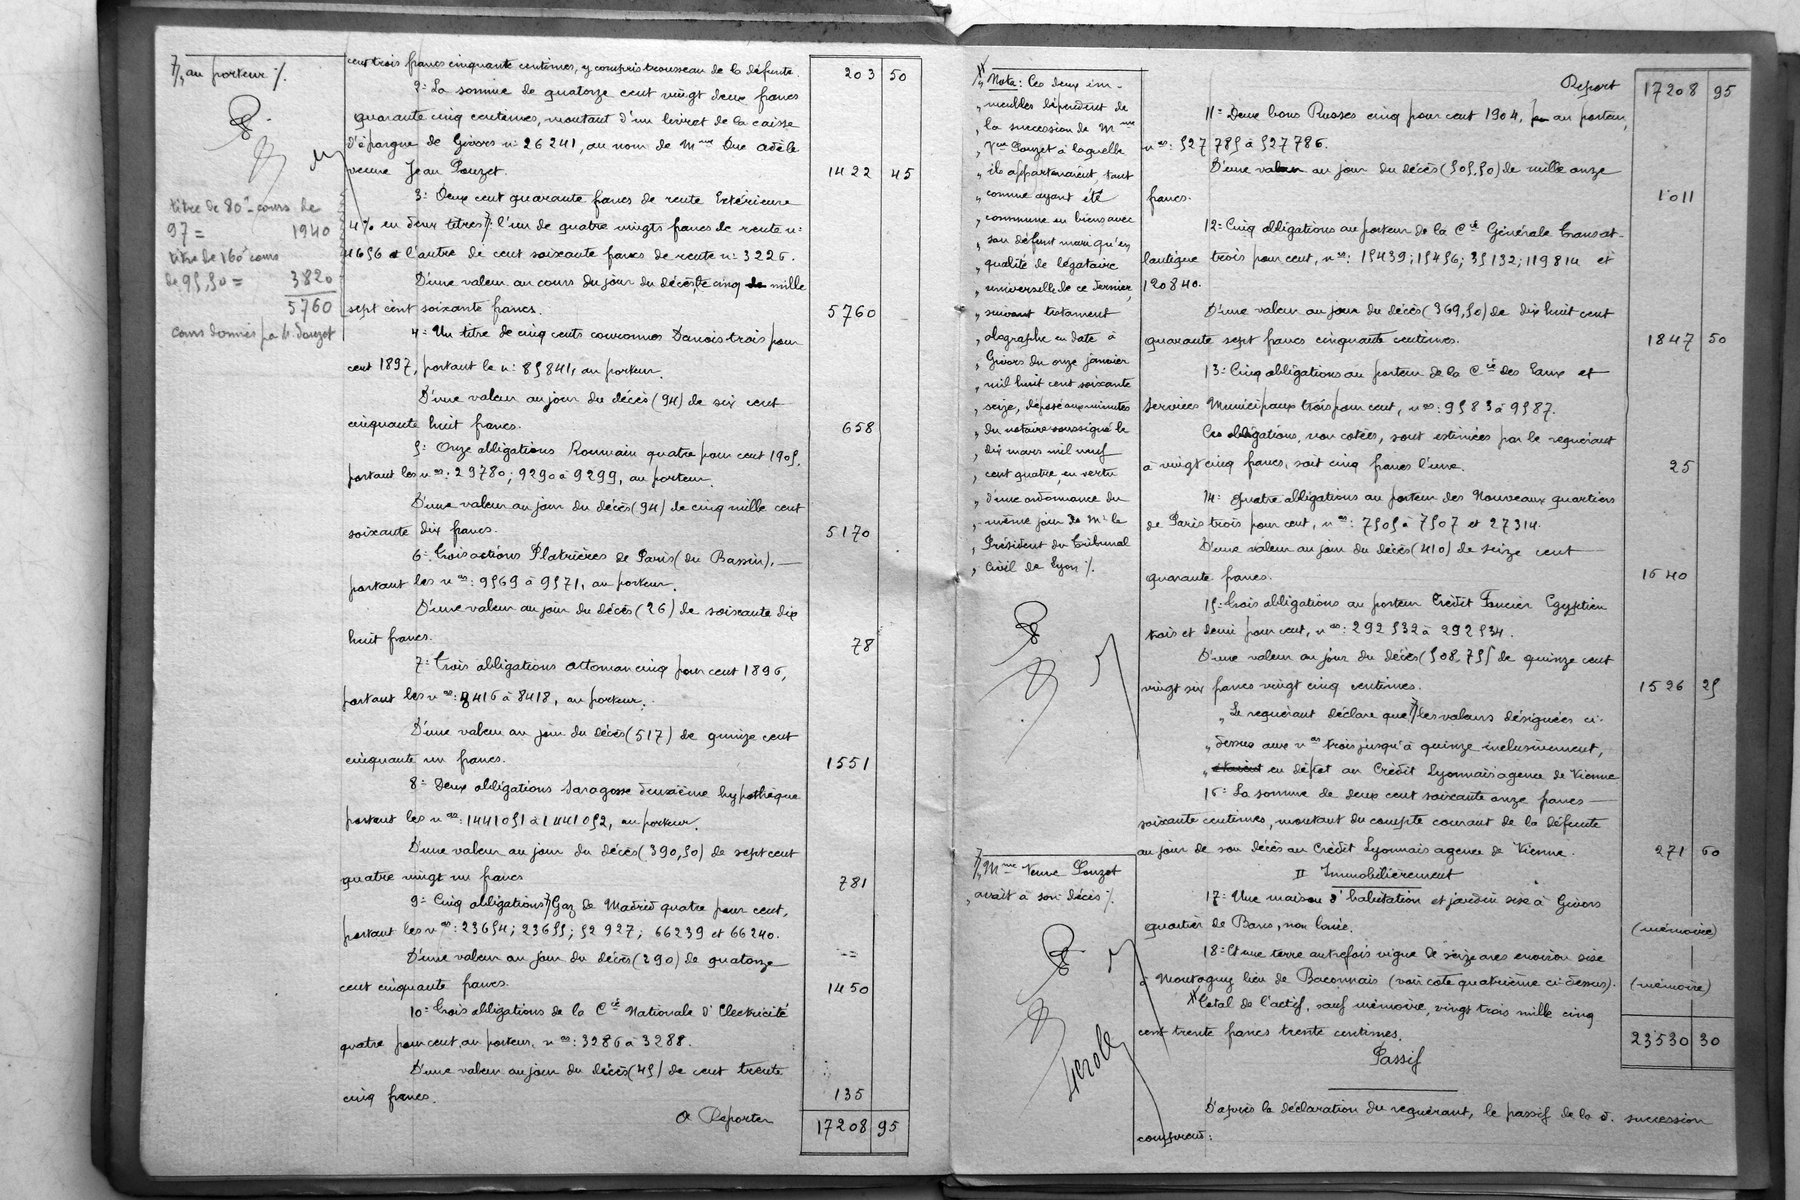 7/, au porteur ./.
titre de 80 - cours de
97 = 1940
titre de 160 cours
de 95,50 = 3820
5760
cours donnés par M. Pouzet
cent trois francs cinquante centimes, y compris trousseau de la défunte. 203 50
2= La somme de quatorze cent vingt deux francs
quarante cinq centimes, montant d'un livret de la caisse
d'épargne de Givors n= 26241, au nom de Mme Duc Adèle
veuve Jean Pouzet. 1422 45
3= Deux cent quarante francs de rente Extérieure
4% en deux titres 7/: l'un de quatre vingts francs de rente n=
4656 et l'autre de cent soixante francs de rente n= 3226.
D'une valeur au cours du jour du décès, de cinq mille
sept cent soixante francs. 5760
4= Un titre de cinq cents couronnes Danois trois pour
cent 1897, portant le n= 85841, au porteur.
D'une valeur au jour du décès (94) de six cent
cinquante huit francs. 658
5= Onze obligations Roumain quatre pour cent 1905,
portant les nos: 29780; 9290 à 9299, au porteur.
D'une valeur au jour du décès (94) de cinq mille cent
soixante dix francs. 5170
6= Trois actions Platrières de Paris (du Bassin),
portant les nos: 9569 à 9571, au porteur.
D'une valeur au jour du décès (26) de soixante dix
huit francs. 78
7= Trois obligations Ottoman cinq pour cent 1896,
portant les nos: 8416 à 8418, au porteur.
D'une valeur au jour du décès (517) de quinze cent
cinquante un francs. 1551
8= Deux obligations Saragosse deuxième hypothèque
portant les nos: 1441051 à 1441052, au porteur.
D'une valeur au jour du décès (390,50) de sept cent
quatre vingt un francs 781
9= Cinq obligations 7/ Gaz de Madrid quatre pour cent,
portant les nos: 23654; 23655; 52927; 66239 et 66240.
D'une valeur au jour du décès (290) de quatorze
cent cinquante francs. 1450
10= Trois obligations de la Cie Nationale d'Electricité
quatre pour cent, au porteur, nos: 3286 à 3288.
D'une valeur au jour du décès (45) de cent trente
cinq francs. 135
A Reporter 17208 95
„ Note: Ces deux im-
„ meubles dépendent de
„ la succession de Mme
„ Vve Pouzet à laquelle
„ ils appartenaient, tant
„ comme ayant été
„ commune en biens avec
„ son défunt mari qu'en
„ qualité de légataire
„ universelle de ce dernier,
„ suivant testament
„ olographe en date à
„ Givors du onze janvier
„ mil huit cent soixante
„ seize, déposé aux minutes
„ du notaire soussigné le
„ dix mars mil neuf
„ cent quatre, en vertu
„ d'une ordonnance du
„ même jour de Mr le
„ Président du Tribunal
„ civil de Lyon ./.
7/, Mme Veuve Pouzet
„ avait à son décès ./.
Report 17208 95
11= Deux bons Russes cinq pour cent 1904, au porteur,
nos: 527785 à 527786.
D'une valeur au jour du décès (505,50) de mille onze
francs. 1011
12= Cinq obligations au porteur de la Cie Générale Transat-
lantique trois pour cent, nos: 15439; 15456; 35132; 119814 et
120840.
D'une valeur au jour du décès (369,50) de dix huit cent
quarante sept francs cinquante centimes. 1847 50
13= Cinq obligations au porteur de la Cie des Eaux et
Services Municipaux trois pour cent, nos: 9583 à 9587.
Ces obligations, non cotées, sont estimées par le requérant
à vingt cinq francs, soit cinq francs l'une. 25
14= Quatre obligations au porteur des Nouveaux quartiers
de Paris trois pour cent, nos: 7505 à 7507 et 27314.
D'une valeur au jour du décès (410) de seize cent
quarante francs. 1640
15= Trois obligations au porteur Crédit Foncier Egyptien
trois et demi pour cent, nos: 292532 à 292534.
D'une valeur au jour du décès (508,75) de quinze cent
vingt six francs vingt cinq centimes. 1526 25
„ Le requérant déclare que 7/ les valeurs désignées ci-
„ dessus aux nos trois jusqu'à quinze inclusivement,
„ étaient en dépôt au Crédit Lyonnais agence de Vienne
16= La somme de deux cent soixante onze francs
soixante centimes, montant du compte courant de la défunte
au jour de son décès au Crédit Lyonnais agence de Vienne. 271 60
II Immobilièrement
17= Une maison d'habitation et jardin sise à Givors
quartier de Bans, non louée. (mémoire)
18= Et une terre autrefois vigne de seize ares environ sise
à Montagny lieu de Baconnais (voir cote quatrième ci-dessus). (mémoire)
Total de l'actif, sauf mémoire, vingt trois mille cinq
cent trente francs trente centimes. 23530 30
Passif
D'après la déclaration du requérant, le passif de la d. succession
comprend: